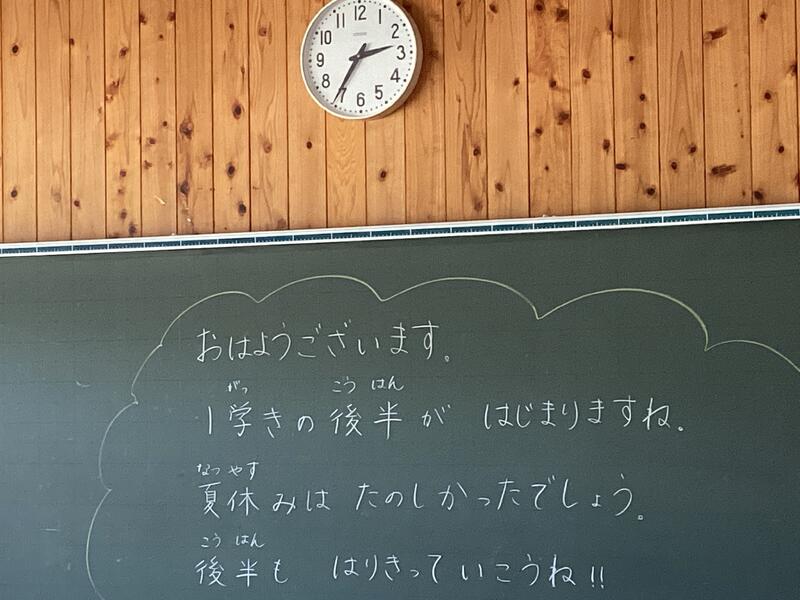 12
1
2
3
4
5
6
7
8
9
10
11
おはようございます。
がっ こう はん
1学きの後半が はじまりますね。
なつ やす
夏休みは たのしかったでしょう。
こう はん
後半も はりきって いこうね!!